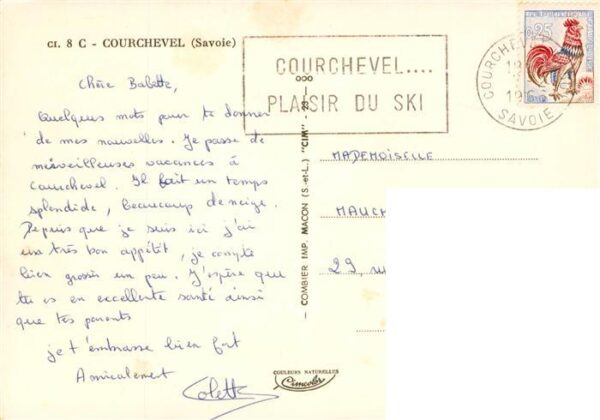 CI. 8 C - COURCHEVEL (Savoie)
Chère Babette,
Quelques mots pour te donner
de mes nouvelles. Je passe de
merveilleuses vacances à
Courchevel. Il fait un temps
splendide, beaucoup de neige.
Depuis que je suis ici j'ai
un très bon appétit, je compte
bien grossir un peu. J'espère que
tu es en excellente santé ainsi
que tes parents
je t'embrasse bien fort
Amicalement
Colette
COURCHEVEL....
PLAISIR DU SKI
COURCHEVEL
SAVOIE
0,25
COMBIER IMP. MACON (S.-et-L.) "CIM" - 23
COULEURS NATURELLES
Cimcolor
MADEMOISELLE
MAUCH
29, ru